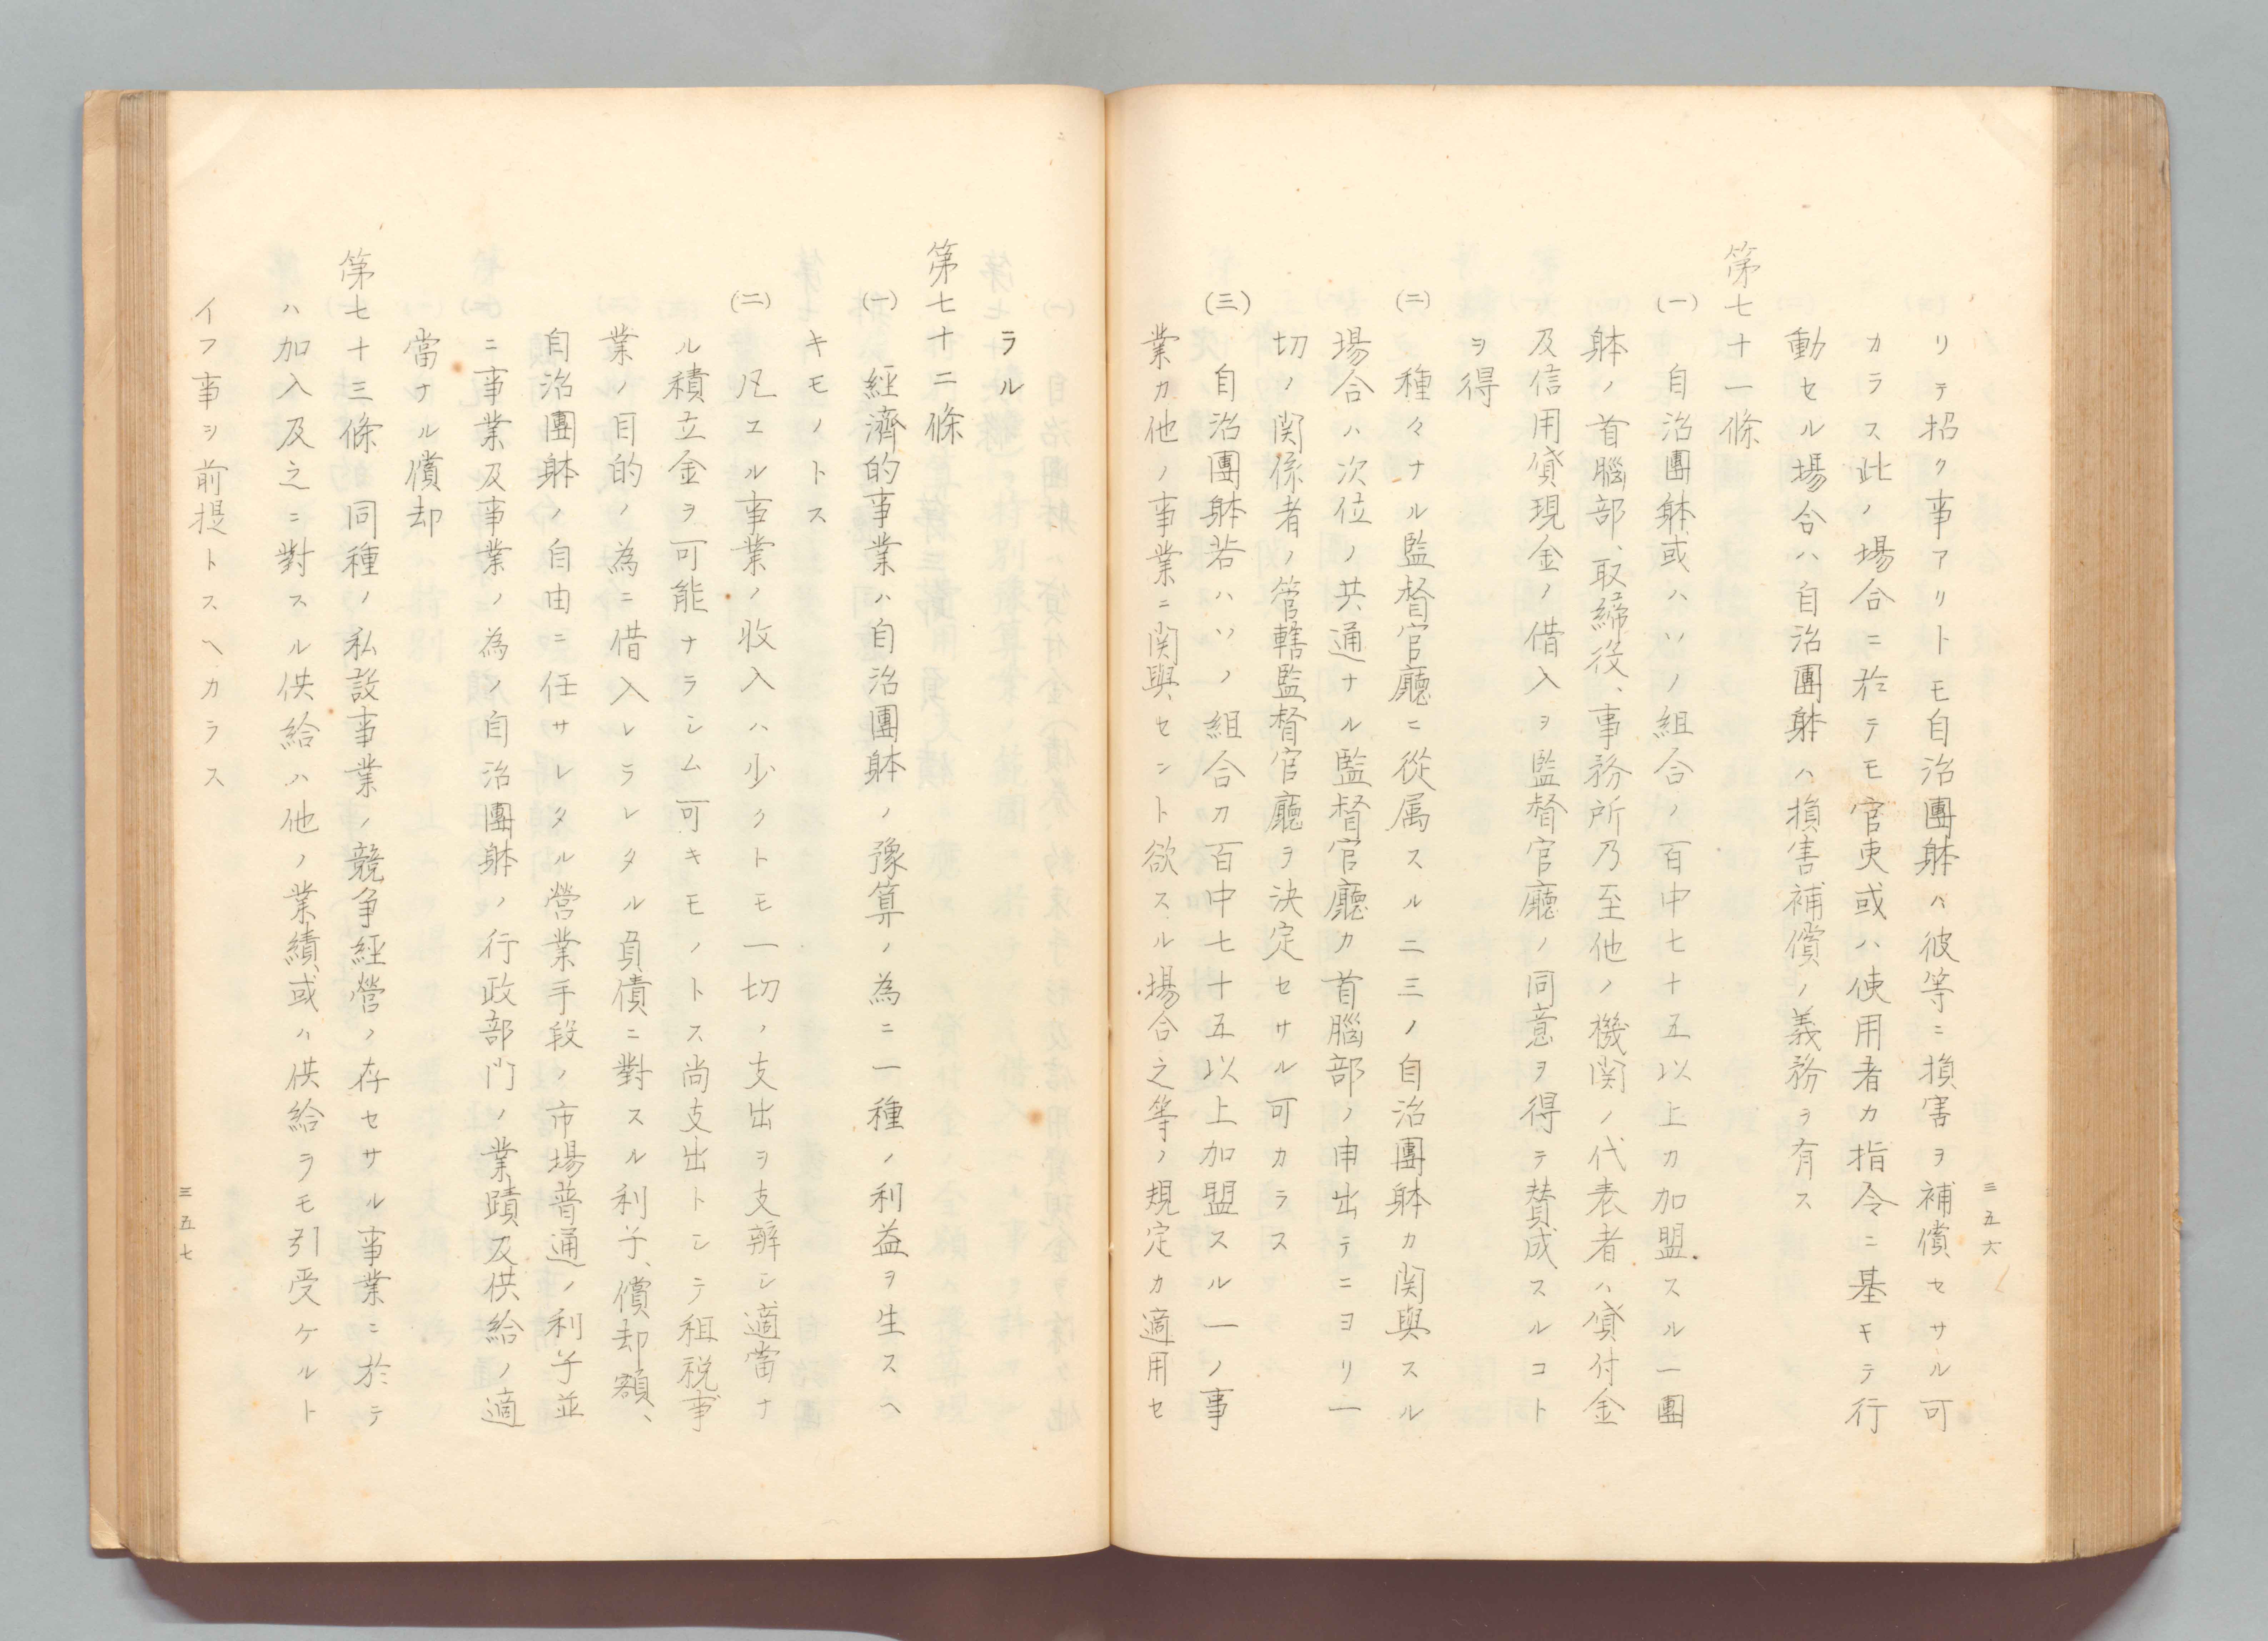 三五六
リテ招ク事アリトモ自治團躰ハ彼等ニ損害ヲ補償セサル可
カラス此ノ場合ニ於テモ官吏或ハ使用者カ指令ニ基キテ行
動セル場合ハ自治團躰ハ損害補償ノ義務ヲ有ス
第七十一條
(一) 自治團躰或ハソノ組合ノ百中七十五以上カ加盟スル一團
躰ノ首腦部、取締役、事務所乃至他ノ機関ノ代表者ハ貸付金
及信用貸現金ノ借入ヲ監督官廳ノ同意ヲ得テ賛成スルコト
ヲ得
(二) 種々ナル監督官廳ニ從属スル二三ノ自治團躰カ関與スル
場合ハ次位ノ共通ナル監督官廳カ首腦部ノ申出テニヨリ一
切ノ関係者ノ管轄監督官廳ヲ決定セサル可カラス
(三) 自治團躰若ハソノ組合カ百中七十五以上加盟スル一ノ事
業カ他ノ事業ニ関與セント欲スル場合之等ノ規定カ適用セ
ラル
第七十二條
(一) 經濟的事業ハ自治團躰ノ豫算ノ為ニ一種ノ利益ヲ生スヘ
キモノトス
(二) 凡ユル事業ノ收入ハ少クトモ一切ノ支出ヲ支辨シ適當ナ
ル積立金ヲ可能ナラシム可キモノトス尚支出トシテ租税事
業ノ目的ノ為ニ借入レラレタル負債ニ對スル利子、償却額、
自治團躰ノ自由ニ任サレタル營業手段ノ市場普通ノ利子並
ニ事業及事業ノ為ノ自治團躰ノ行政部門ノ業蹟及供給ノ適
當ナル償却
第七十三條 同種ノ私設事業ノ競争經營ノ存セサル事業ニ於テ
ハ加入及之ニ對スル供給ハ他ノ業績或ハ供給ヲモ引受ケルト
イフ事ヲ前提トスヘカラス
三五七